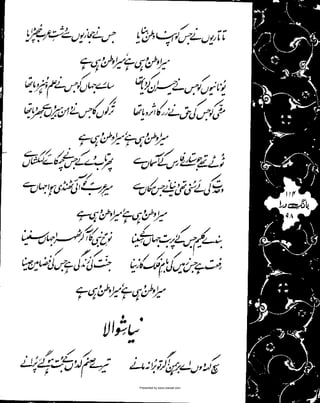 تاتاریوں نے جس کو اپنا وطن بنایا جس نے حجازیوں سے دشتِ عرب چھڑایا
میرا وطن وہی ہے میرا وطن وہی ہے
یونانیوں کو جس نے حیران کر دیا تھا سارے جہاں کو جس نے علم و ہنر دیا تھا
مٹی کو جس کی حق نے زر کا اثر دیا تھا ترکوں کا جس نے دامن ہیروں سے بھر دیا تھا
میرا وطن وہی ہے میرا وطن وہی ہے
ٹوٹے تھے جو ستارے فارس کے آسماں سے پھر تاب دے کے جس نے چمکائے کہکشاں سے
وحدت کی لے سنی تھی دنیا نے جس مکاں سے میرِ عرب کو آئی ٹھنڈی ہوا جہاں سے
میرا وطن وہی ہے میرا وطن وہی ہے
بندے کلیم جس کے پربت جہاں کے سینا نوحِ نبی کا آ کر ٹھہرا جہاں سفینا
رفعت ہے جس زمیں کی بامِ فلک کا زینا جنت کی زندگی ہے جس کی فضا میں جینا
میرا وطن وہی ہے میرا وطن وہی ہے
نیا شوالا
سچ کہہ دوں اے برہمن گر تو برا نہ مانے تیرے صنم کدوں کے بت ہو گئے پرانے
۱۱۴
بانگِ درا
۹۸